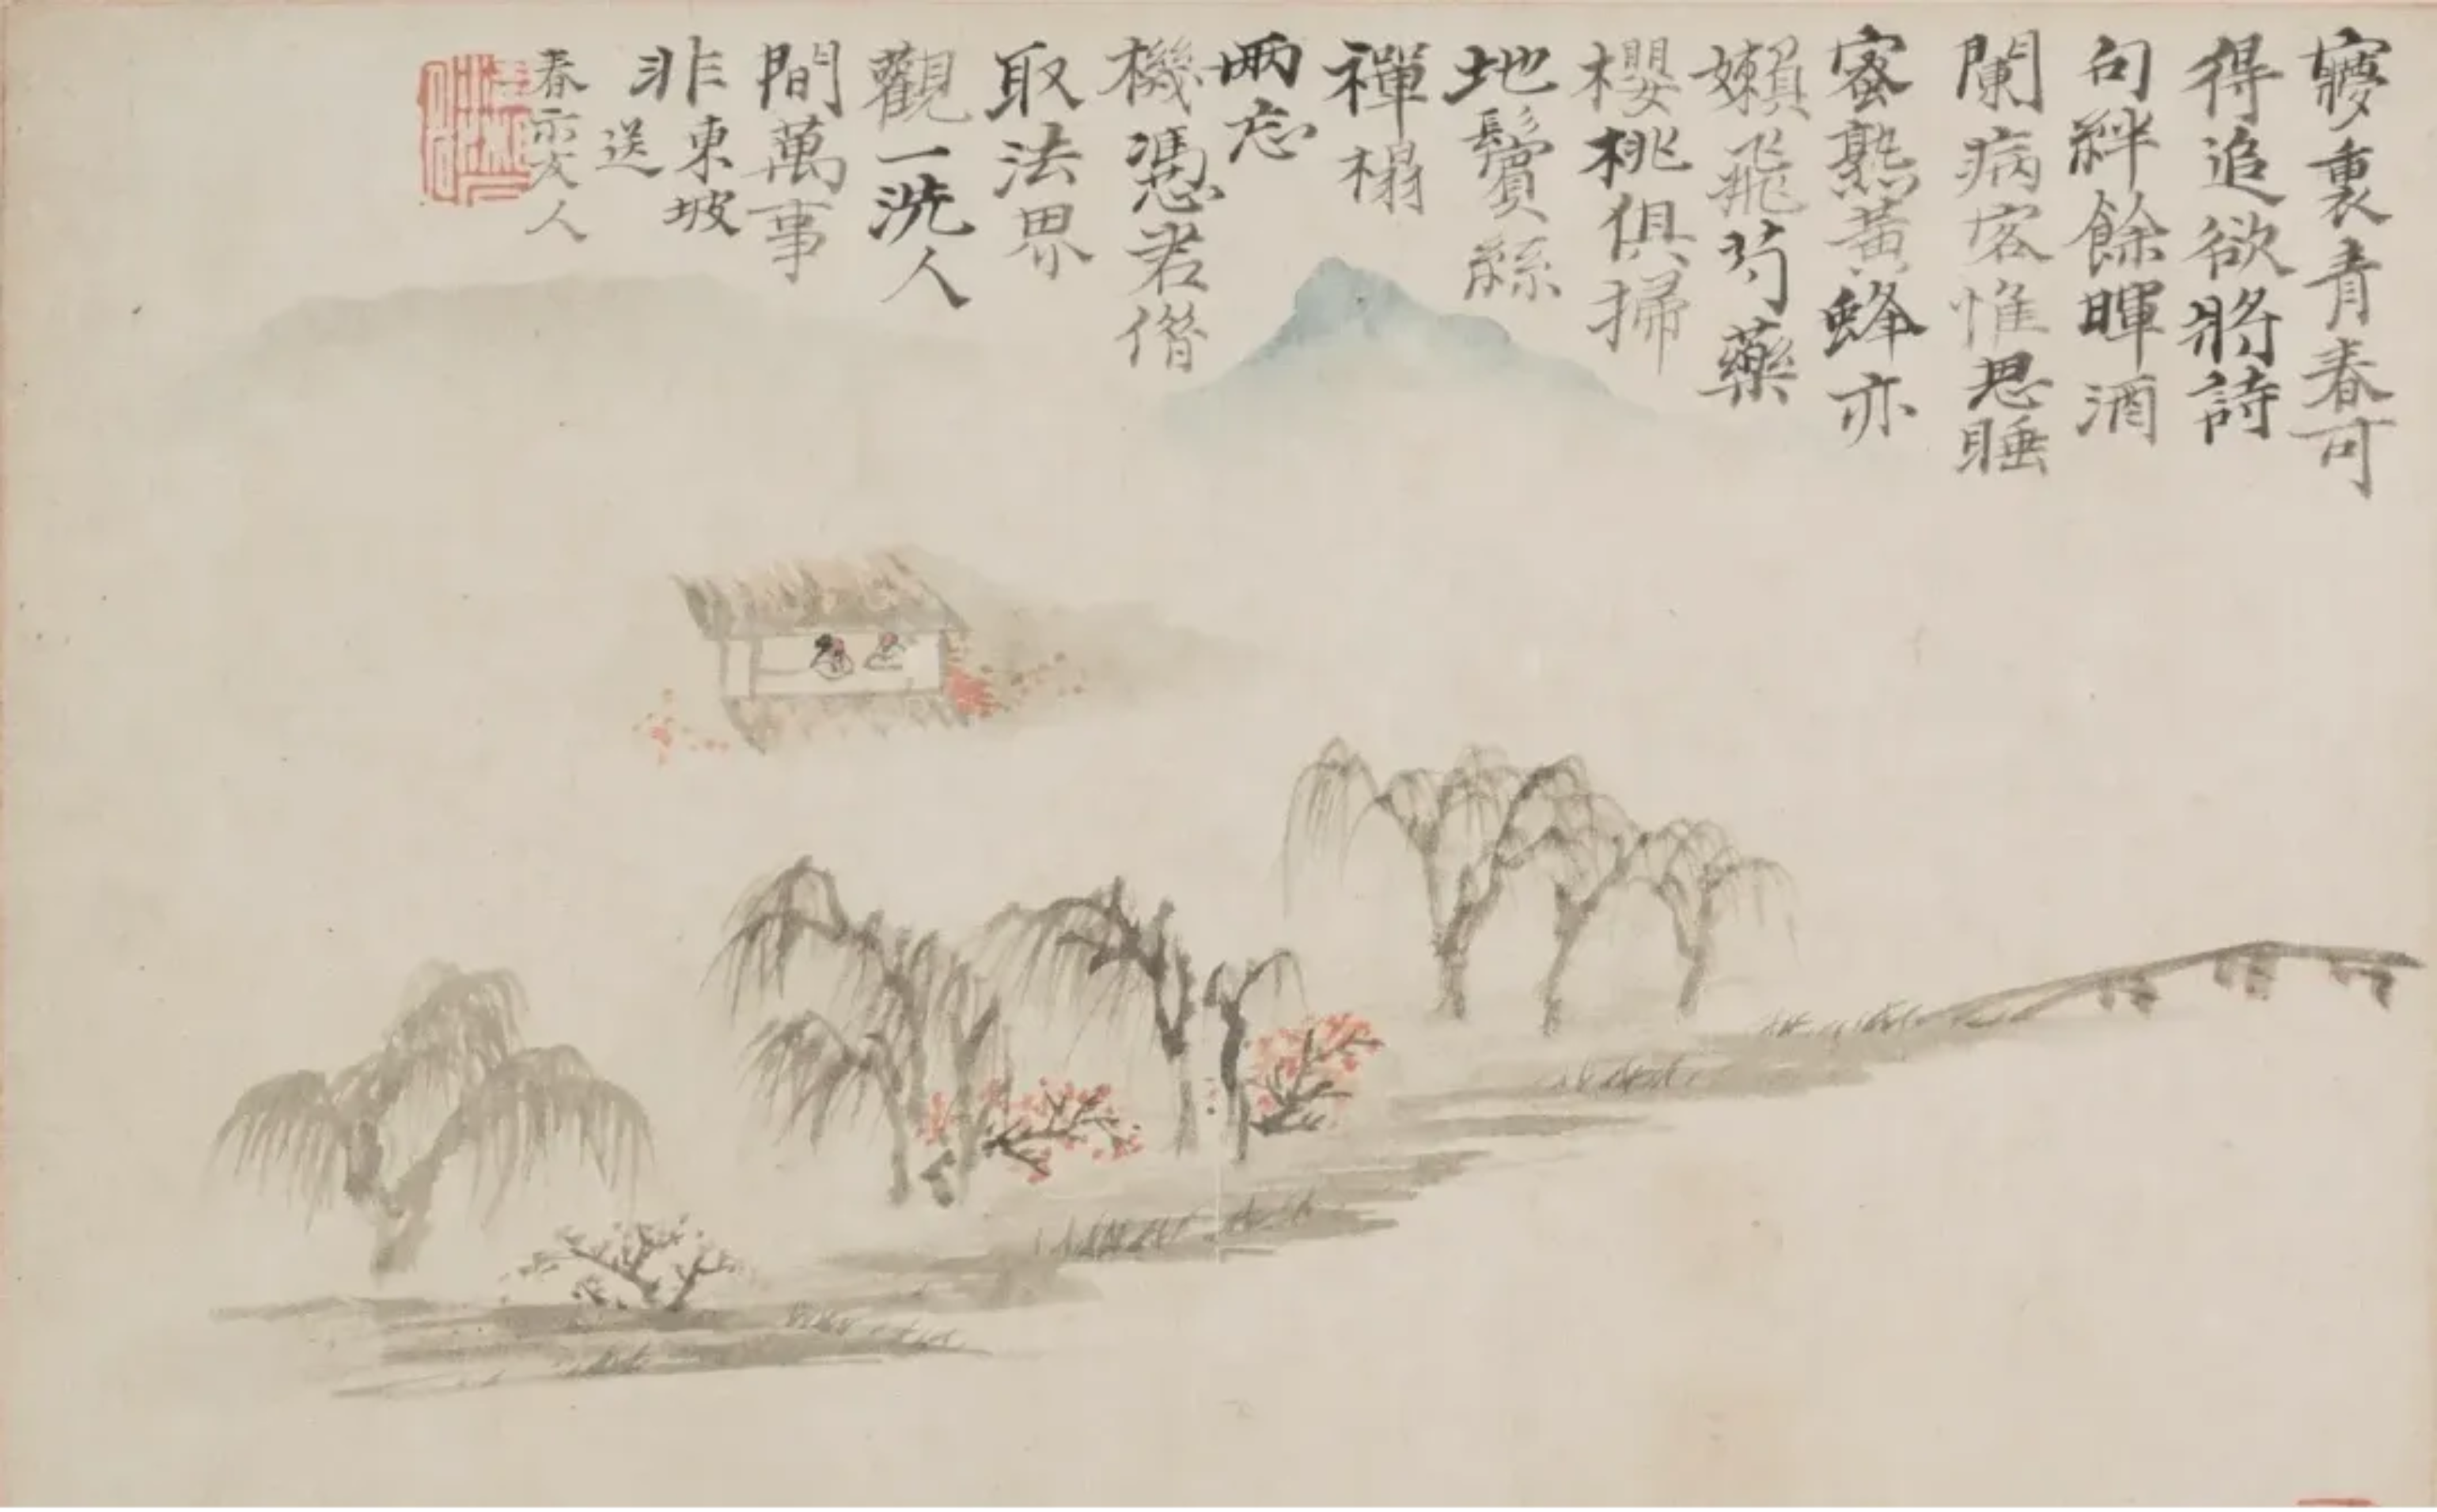 㝱裏青春可
得追欲將詩
句絆餘暉酒
闌病客惟思睡
蜜熟黃蜂亦
嬾飛芍藥
櫻桃俱掃
地鬢絲
禪榻
兩忘
機憑君借
取法界
觀一洗人
間萬事
非東坡
送
春示友人